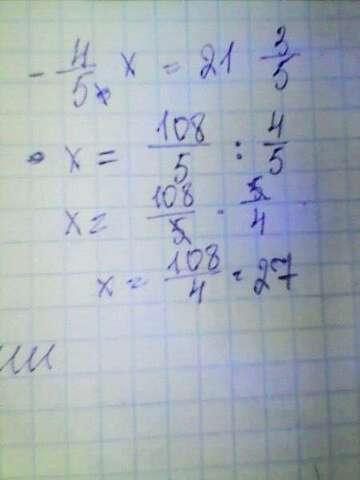 - 4/5 x = 21 3/5
• x = 108/5 : 4/5
x = 108/5 · 5/4
x = 108/4 = 27